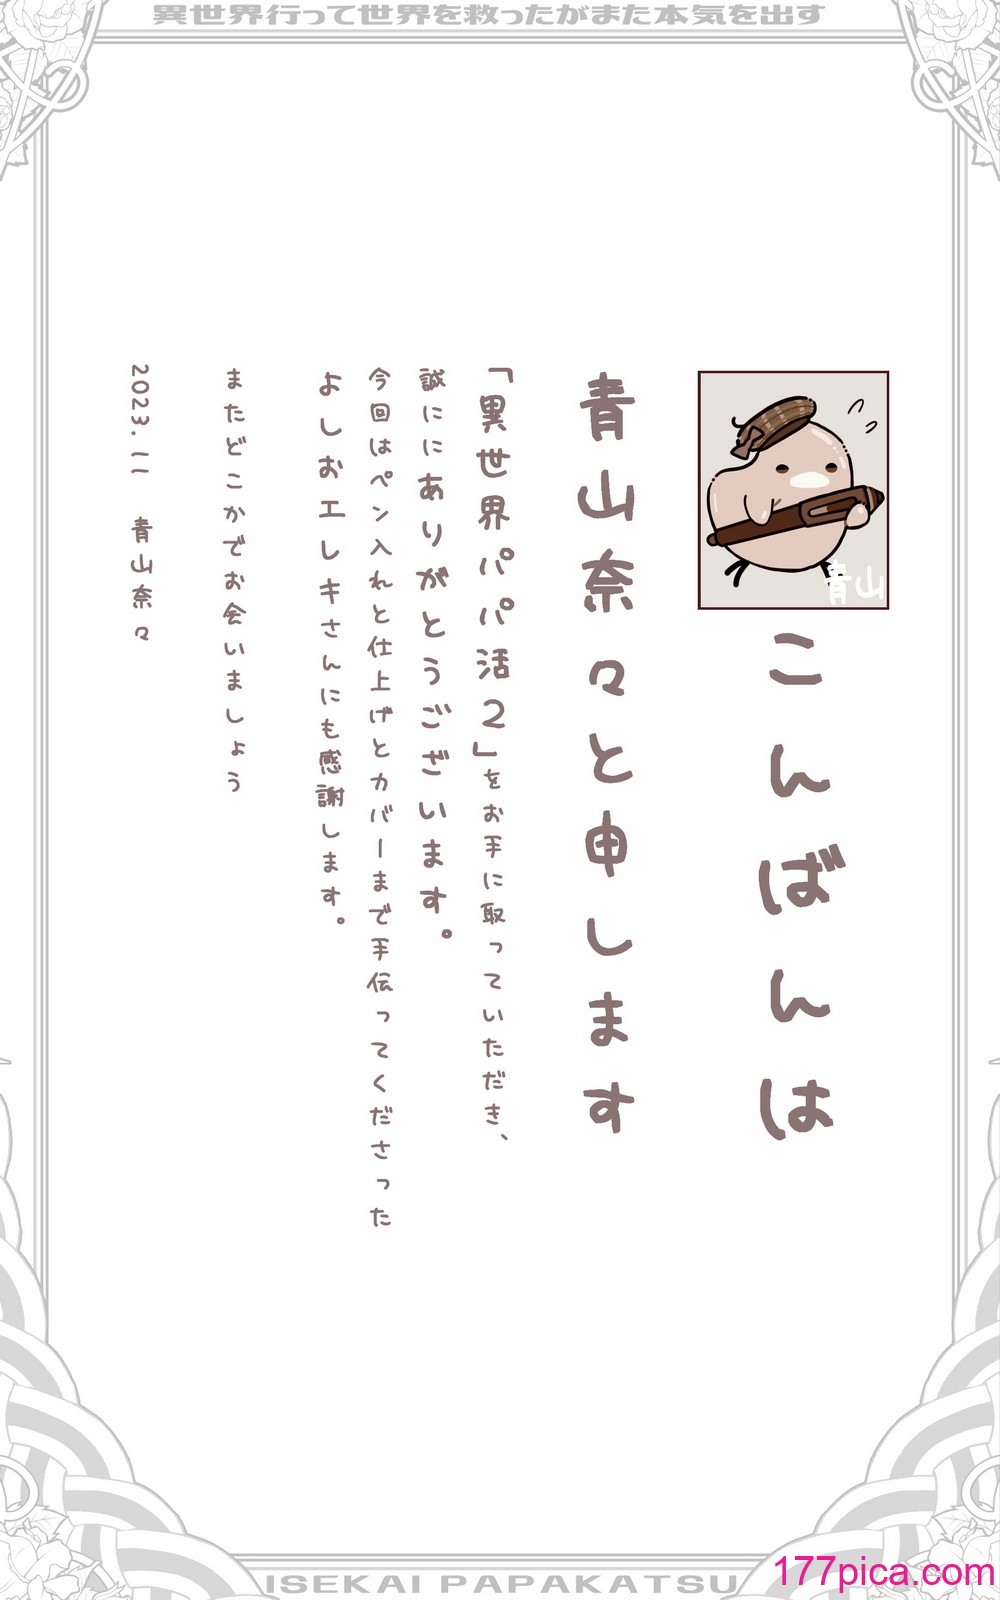 異世界行って世界を救ったがまた本気を出す
青山
こんばんは
青山奈々と申します
「異世界パパ活2」をお手に取っていただき、
誠ににありがとうございます。
今回はペン入れと仕上げとカバーまで手伝ってくださった
よしおエレキさんにも感謝します。
またどこかでお会いましょう
2023.11 青山奈々
ISEKAI PAPAKATSU
177pica.com